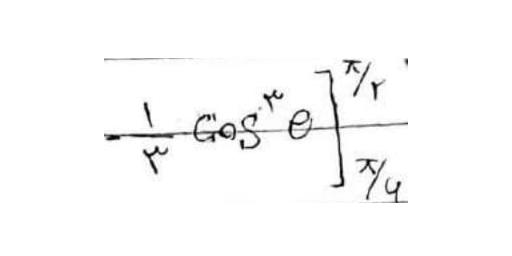 -۱/۳ Cos^۳ θ ]_{π/۶}^{π/۲}